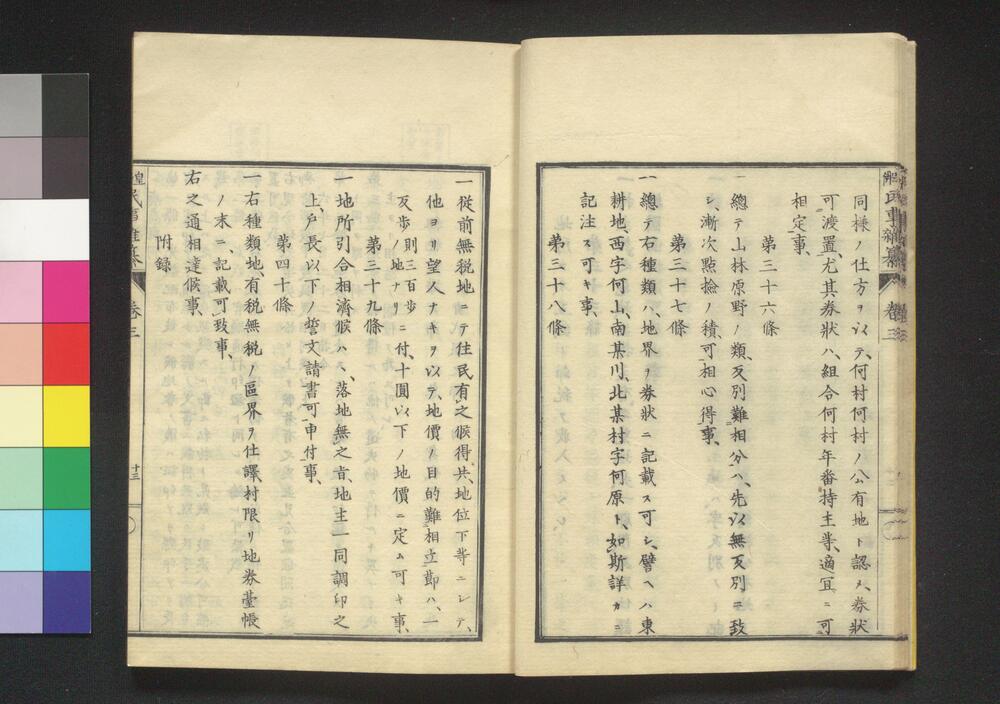 同樣ノ仕方ヲ以テ、何村何村ノ公有地ト認メ、券狀
可渡置、尤其券狀ハ、組合何村年番持主等、適冝ニ可
相定事、
第三十六條
一總テ山林原野ノ類、反別難相分ハ、先以無反別ニ致
シ、漸次點撿ノ積、可相心得事、
第三十七條
一總テ右種類ハ、地界ヲ券狀ニ記載ス可シ、譬ヘハ東
耕地、西字何山、南某川、北某村字何原ト、如斯詳カニ
記注ス可キ事、
第三十八條
一從前無税地ニテ住民有之候得共、地位下等ニシテ、
他ヨリ望人ナキヲ以テ、地價ノ目的難相立節ハ、一
反歩則三百歩ノ地ナリニ付、十圓以下ノ地價ニ定ム可キ事、
第三十九條
一地所引合相濟候ハヽ、落地無之旨、地主一同調印之
上、戸長以下ノ誓文請書可申付事、
第四十條
一右種類地、有税無税ノ區界ヲ仕譯、村限リ地券薹帳
ノ末ニ、記載可致事、
右之通相達候事、
附録
民事 卷三